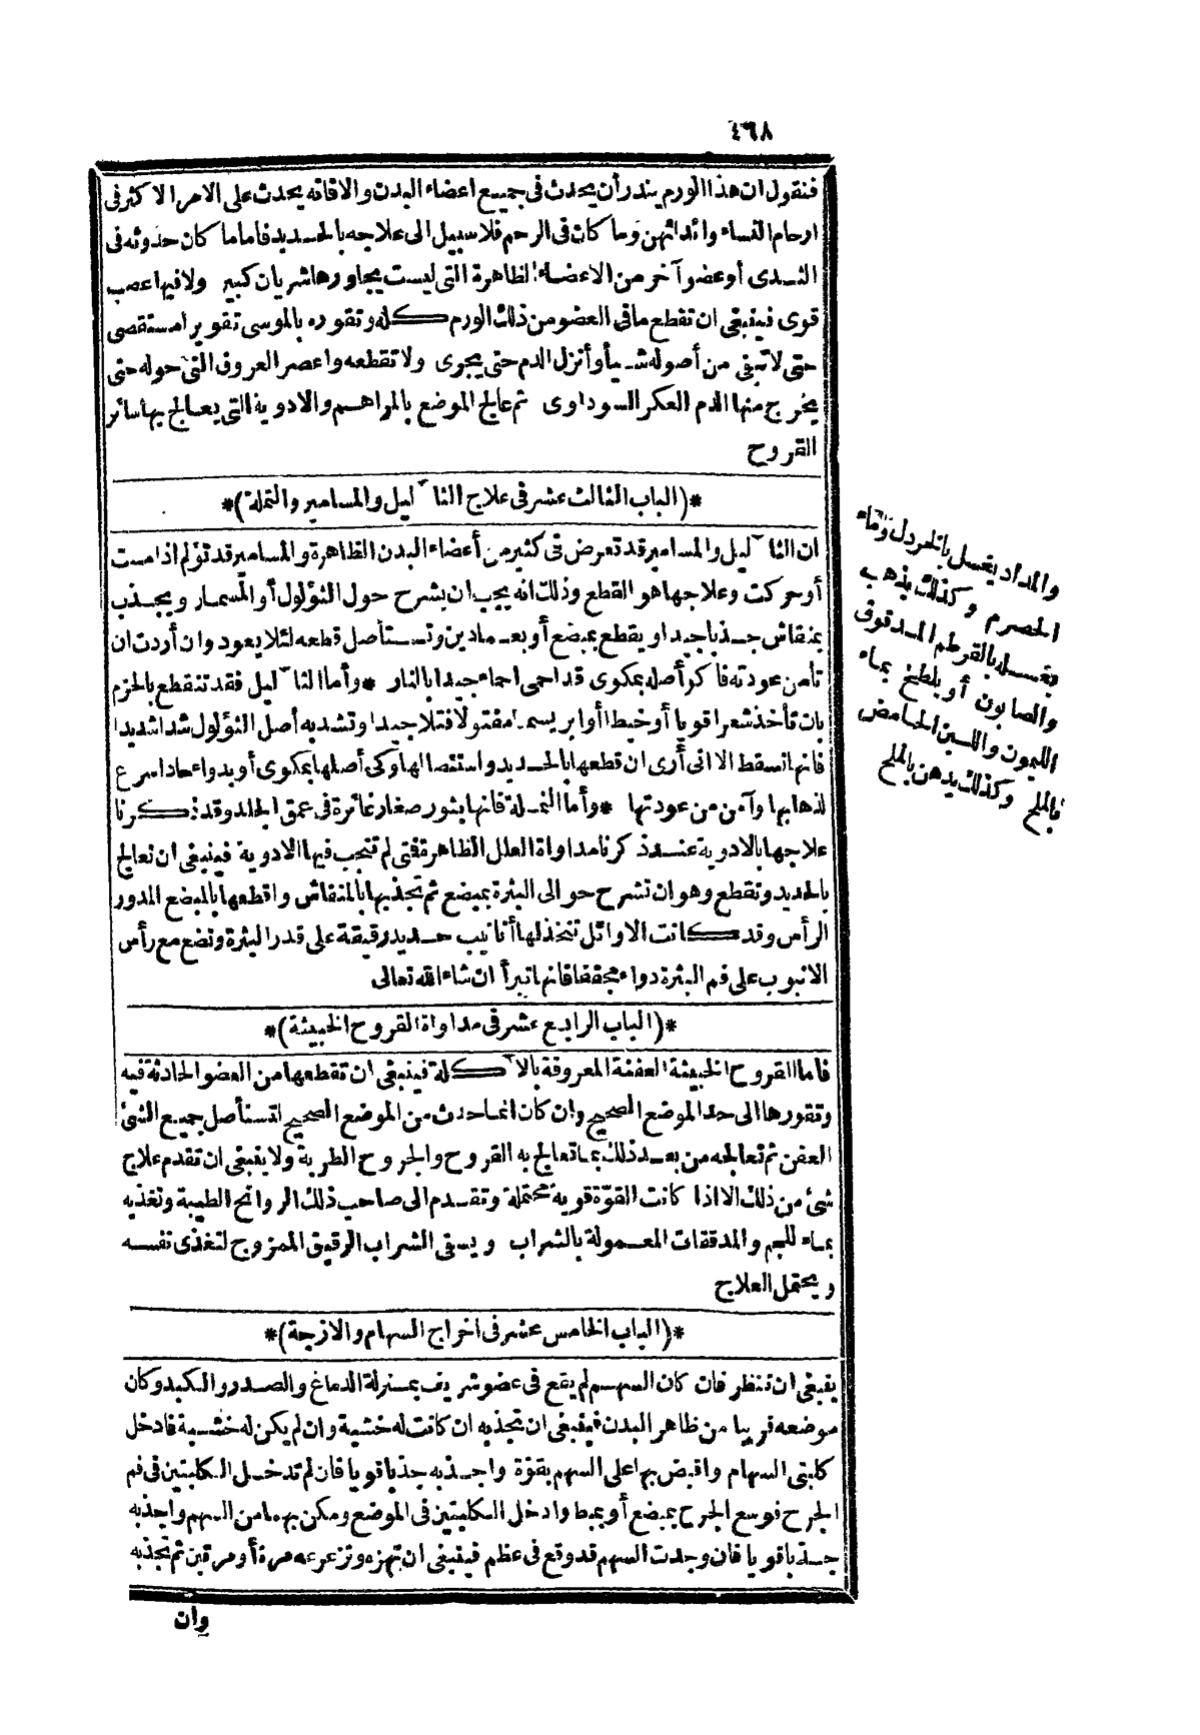 ٤٦٨
فنقول ان هذا الورم يندر أن يحدث فى جميع اعضاء البدن والا فانه يحدث على الامر الاكثر فى
ارحام النساء واثدائهن وما كان فى الرحم فلا سبيل الى علاجه بالحديد فاما ما كان حدوثه فى
الثدى أو عضو آخر من الاعضاء الظاهرة التى ليست يجاورها شريان كبير ولا فيها عصب
قوى فينبغى ان تقطع ما فى العضو من ذلك الورم كله وتقوره بالموسى تقويرا مستقصى
حتى لا تبقى من أصوله شيأ وأنزل الدم حتى يجرى ولا تقطعه واعصر العروق التى حوله حتى
يخرج منها الدم العكر السوداوى ثم عالج الموضع بالمراهم والادوية التى يعالج بها سائر
القروح
*(الباب الثالث عشر فى علاج الثآليل والمسامير والنملة)*
ان الثآليل والمسامير قد تعرض فى كثير من أعضاء البدن الظاهرة والمسامير قد تؤلم اذا مست
أو حركت وعلاجها هو القطع وذلك انه يجب ان يشرح حول الثؤلول أو المسمار ويجذب
بمنقاش جذبا جيدا ويقطع بمبضع أو بعمادين وتستأصل قطعه لئلا يعود وان أردت ان
تأمن عودته فاكو أصله بمكوى قد احمى احماء جيدا بالنار * وأما الثآليل فقد تنقطع بالحزم
بان تأخذ شعرا قويا أو خيطا أو ابريسما مفتولا فتلا جيدا وتشد به أصل الثؤلول شدا شديدا
فانها تسقط الا انى أرى ان قطعها بالحديد واستئصالها وكى أصلها بمكوى أو بدواء حاد اسرع
لذهابها وآمن من عودتها * وأما النملة فانها بثور صغار غائرة فى عمق الجلد وقد ذكرنا
علاجها بالادوية عند ذكرنا مداواة العلل الظاهرة فتى لم تنجب فيها الادوية فينبغى ان تعالج
بالحديد وتقطع وهو ان تشرح حوالى البثرة بمبضع ثم تجذبها بالمنقاش واقطعها بالمبضع المدور
الرأس وقد كانت الاوائل تتخذ لها أنابيب حديد رقيقة على قدر البثرة وتضع مع رأس
الانبوب على فم البثرة دواء مجففا فانها تبرأ ان شاء الله تعالى
*(الباب الرابع عشر فى مداواة القروح الخبيثة)*
فاما القروح الخبيثة العفنة المعروفة بالآكلة فينبغى ان تقطعها من العضو الحادثة فيه
وتقورها الى حد الموضع الصحيح وان كان انما حدث من الموضع الصحيح لتستأصل جميع الشئ
العفن ثم تعالجه من بعد ذلك بما تعالج به القروح والجروح الطرية ولا ينبغى ان تقدم علاج
شئ من ذلك الا اذا كانت القوّة قوية محتملة وتقدم الى صاحب ذلك الروائح الطيبة وتغذيه
بماء اللحم والمدققات المعمولة بالشراب ويسقى الشراب الرقيق الممزوج لتغذى نفسه
ويحتمل العلاج
*(الباب الخامس عشر فى اخراج السهام والازجة)*
ينبغى ان تنظر فان كان السهم لم يقع فى عضو شريف بمنزلة الدماغ والصدر والكبد وكان
موضعه قريبا من ظاهر البدن فينبغى ان تجذبه ان كانت له خشبة وان لم يكن له خشبة فادخل
كلبتى السهام واقبض بها على السهم بقوّة واجذبه جذبا قويا فان لم تدخل الكلبتين فى فم
الجرح فوسع الجرح بمبضع أو بمبط وادخل الكلبتين فى الموضع ومكن بهما من السهم واجذبه
جذبا قويا فان وجدت السهم قد وقع فى عظم فينبغى ان تهزه وتزعزعه مرة أو مرتين ثم تجذبه
وان
والمداد يغسل بالخردل وماء
الحصرم وكذلك يذهب
بغسله بالقرطم المدقوق
والصابون أو يلطخ بماء
الليمون واللبن الحامض
فالملح وكذلك يدهن بالملح